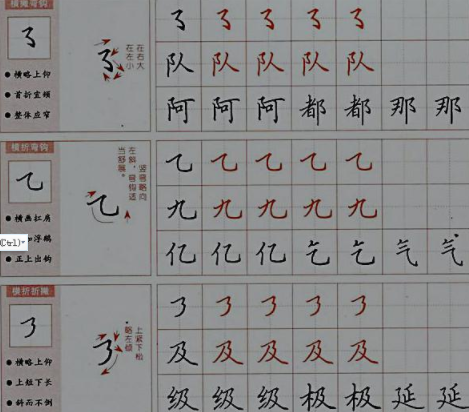 横撇弯钩
㇌
在右大
在左小
㇌ ㇌ ㇌ ㇌ ㇌
队 队 队 队 队
阿 阿 阿 都 都 那 那
●横略上仰
●整体应窄
横折弯钩
乙
竖弯略向
左斜，弯钩适
当舒展。
乙 乙 乙 乙 乙
九 九 九 九 九
亿 亿 亿 乞 乞 气 气
●横画扛肩
(Ctrl)
如浮鹅
●正上出钩
横折折撇
㇋
上紧下松
略左倾
㇋ ㇋ ㇋ ㇋ ㇋
及 及 及 及 及
级 级 级 极 极 延 延
●横略上仰
●上短下长
●斜而不倒